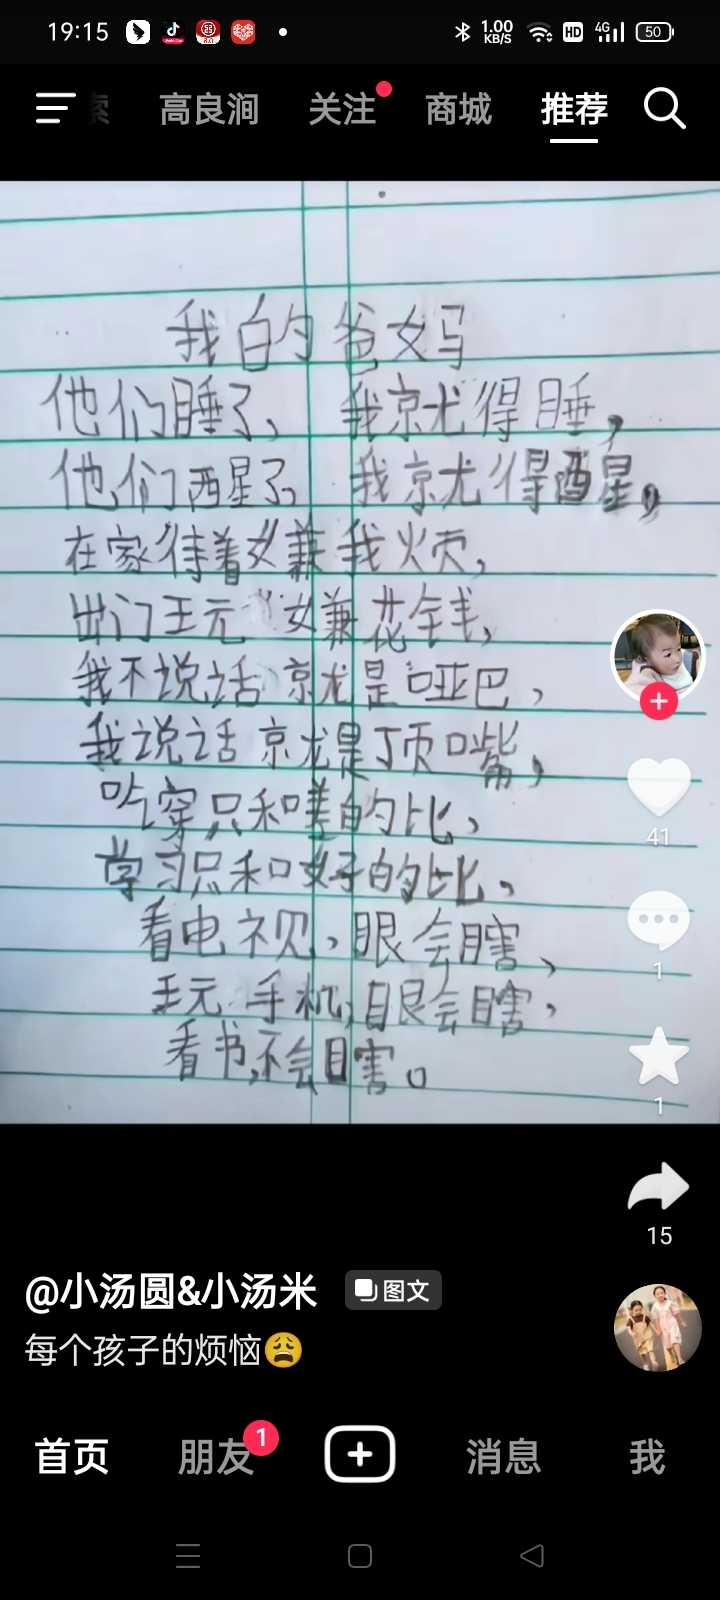 19:15 1.00 KB/S HD 4G 50
索 高良涧 关注 商城 推荐
我的爸妈
他们睡了、我就得睡，
他们醒了、我就得醒，
在家待着嫌我烦，
出门玩 嫌花钱，
我不说话就是哑巴，
我说话就是顶嘴，
吃穿只和差的比，
学习只和好的比，
看电视，眼会瞎、
玩手机，眼会瞎，
看书，不会瞎。
41
1
1
15
@小汤圆&小汤米 图文
每个孩子的烦恼
首页 朋友 1 消息 我